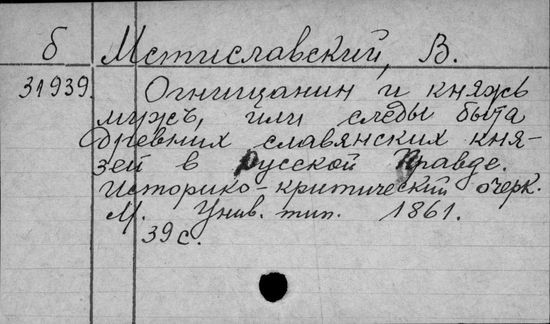 б Мстиславский, В.
31939. Огнищанин и княжъ
мужъ, или следы быта
древних славянских кня-
зей в Русской Правде.
Историко-критический очерк.
М. Унив. тип. 1861.
39 с.